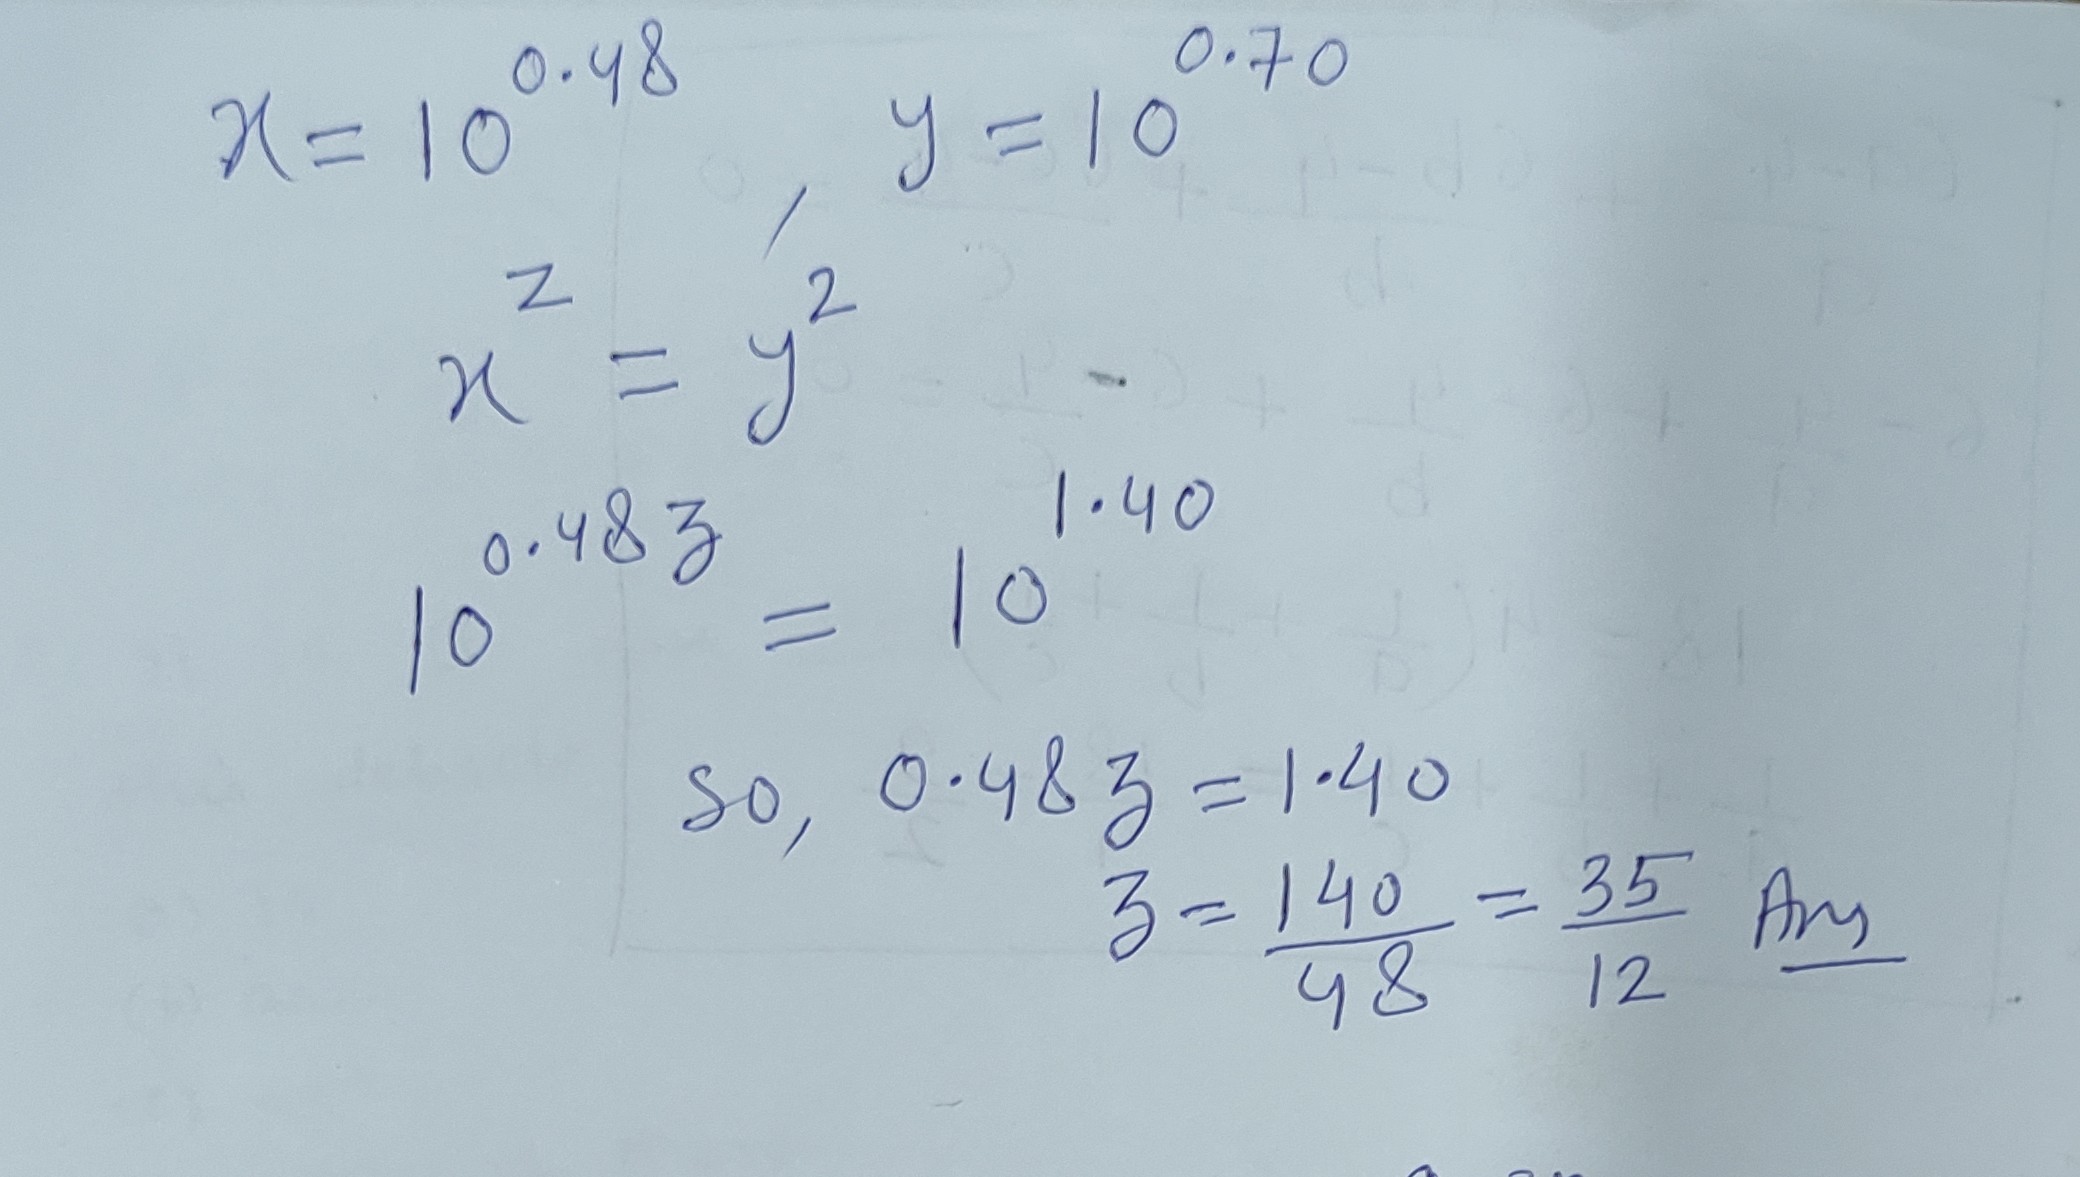 x = 10^0.48 , y = 10^0.70
x^z = y^2
10^0.48z = 10^1.40
so, 0.48z = 1.40
z = 140/48 = 35/12 Ans